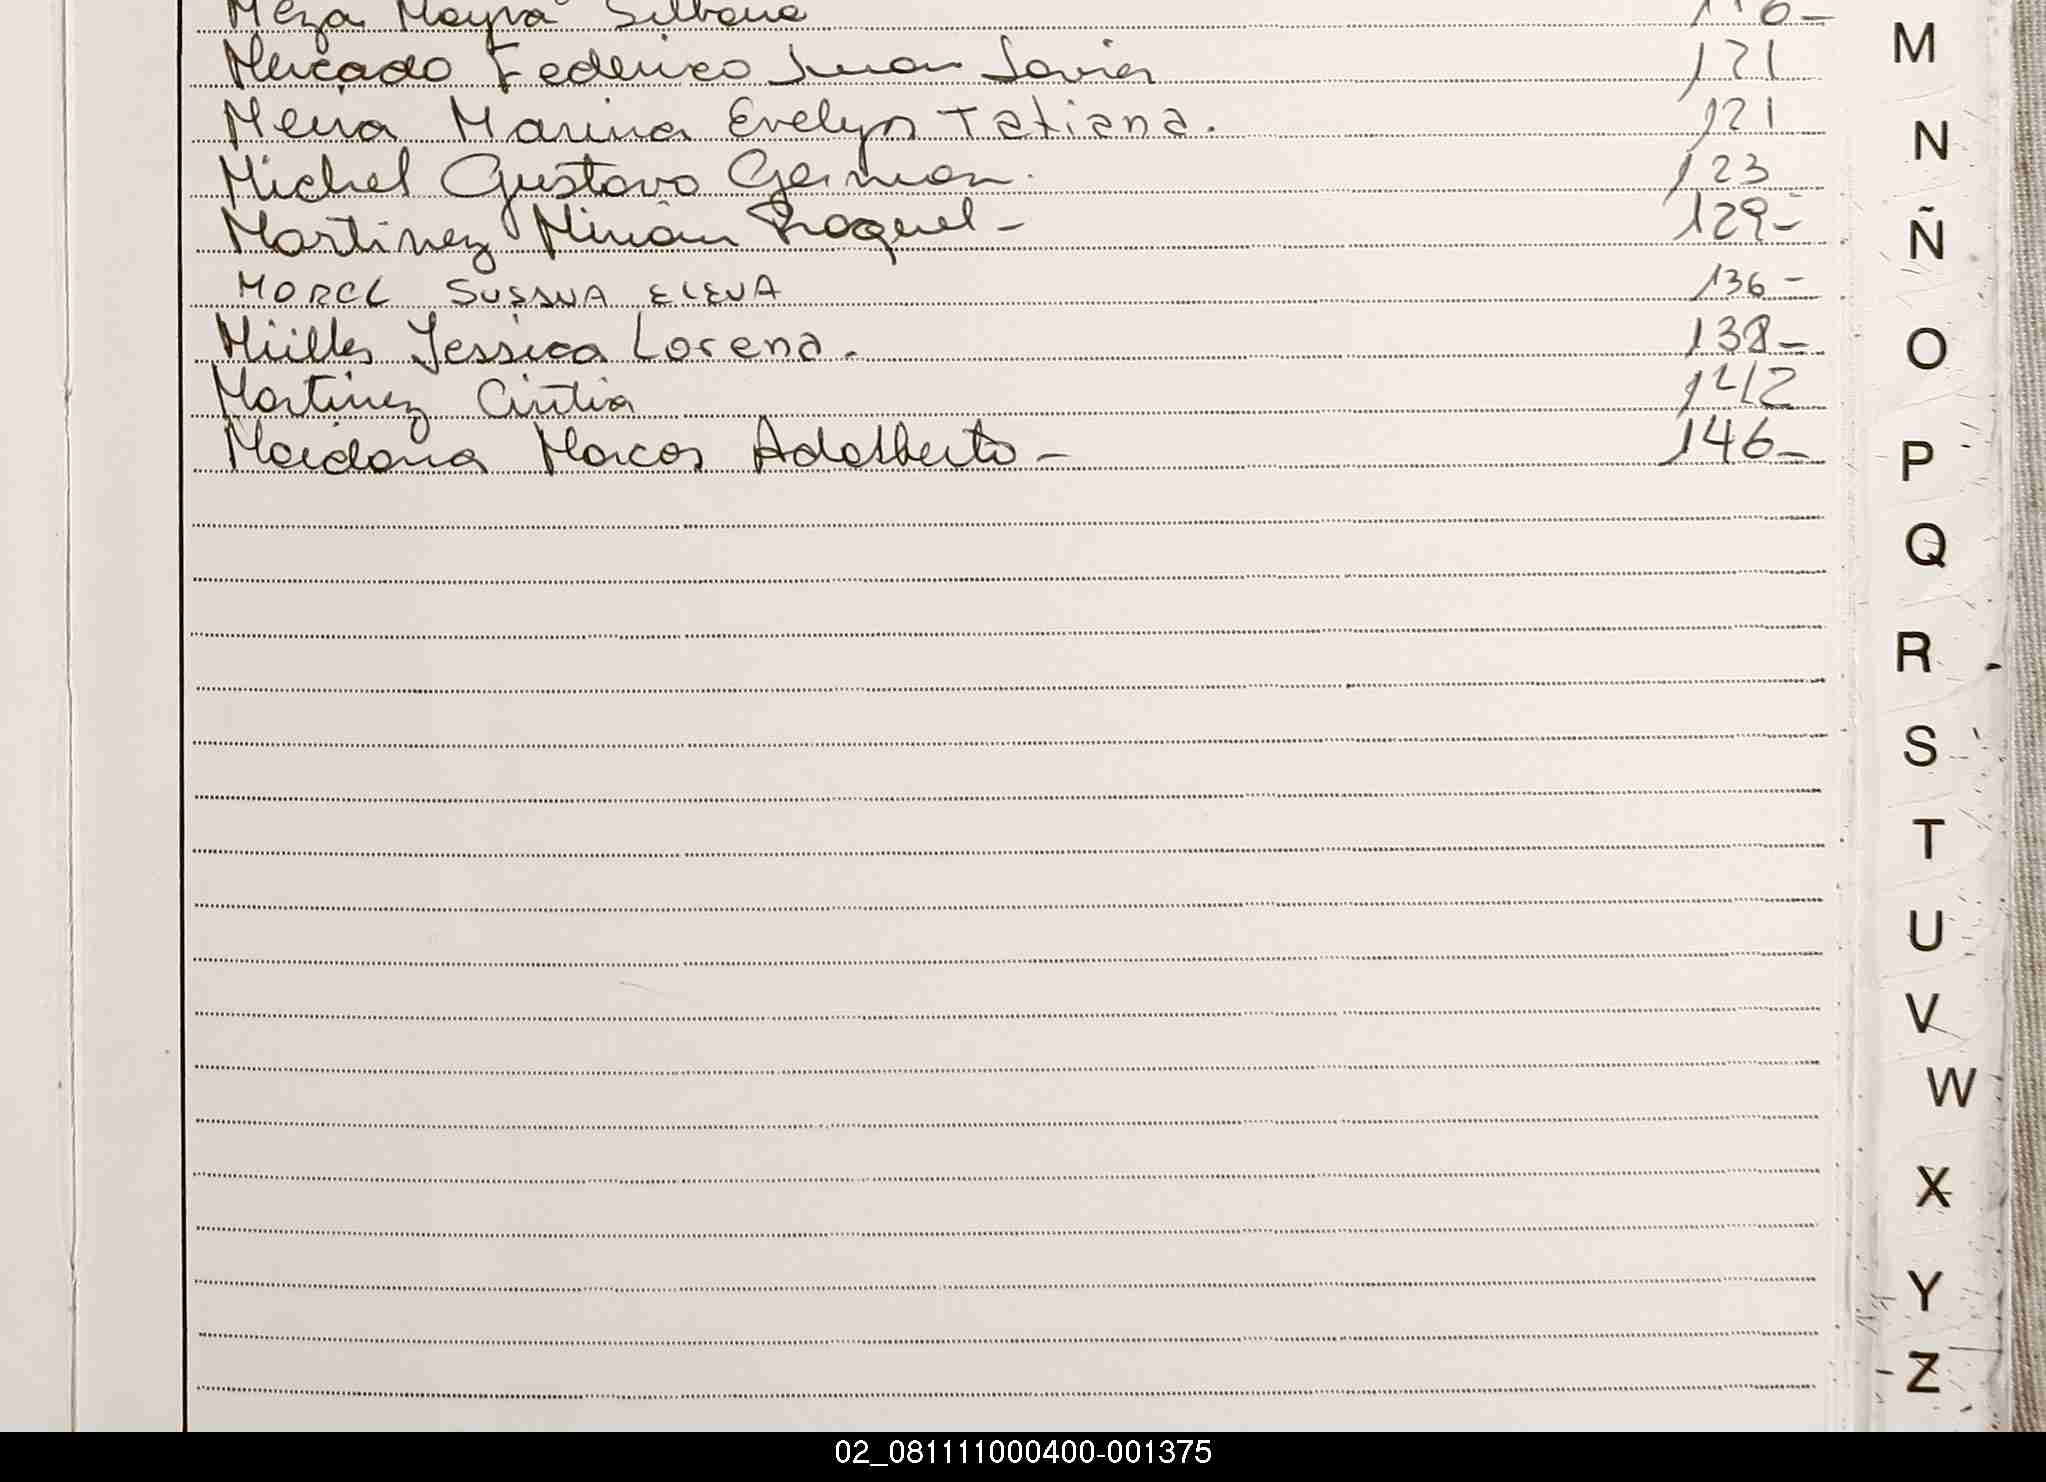 Meza Mayra Silvana 116-
Mercado Federico Juan Javier 121
Meira Marina Evelyn Tatiana. 121
Michel Gustavo German. 123
Martinez Mirian Raquel - 129-
MOREL SUSANA ELENA 136-
Müller Jessica Lorena. 138-
Martinez Cintia 142
Maidana Marcos Adalberto - 146-
M
N
Ñ
O
P
Q
R
S
T
U
V
W
X
Y
Z
02_081111000400-001375